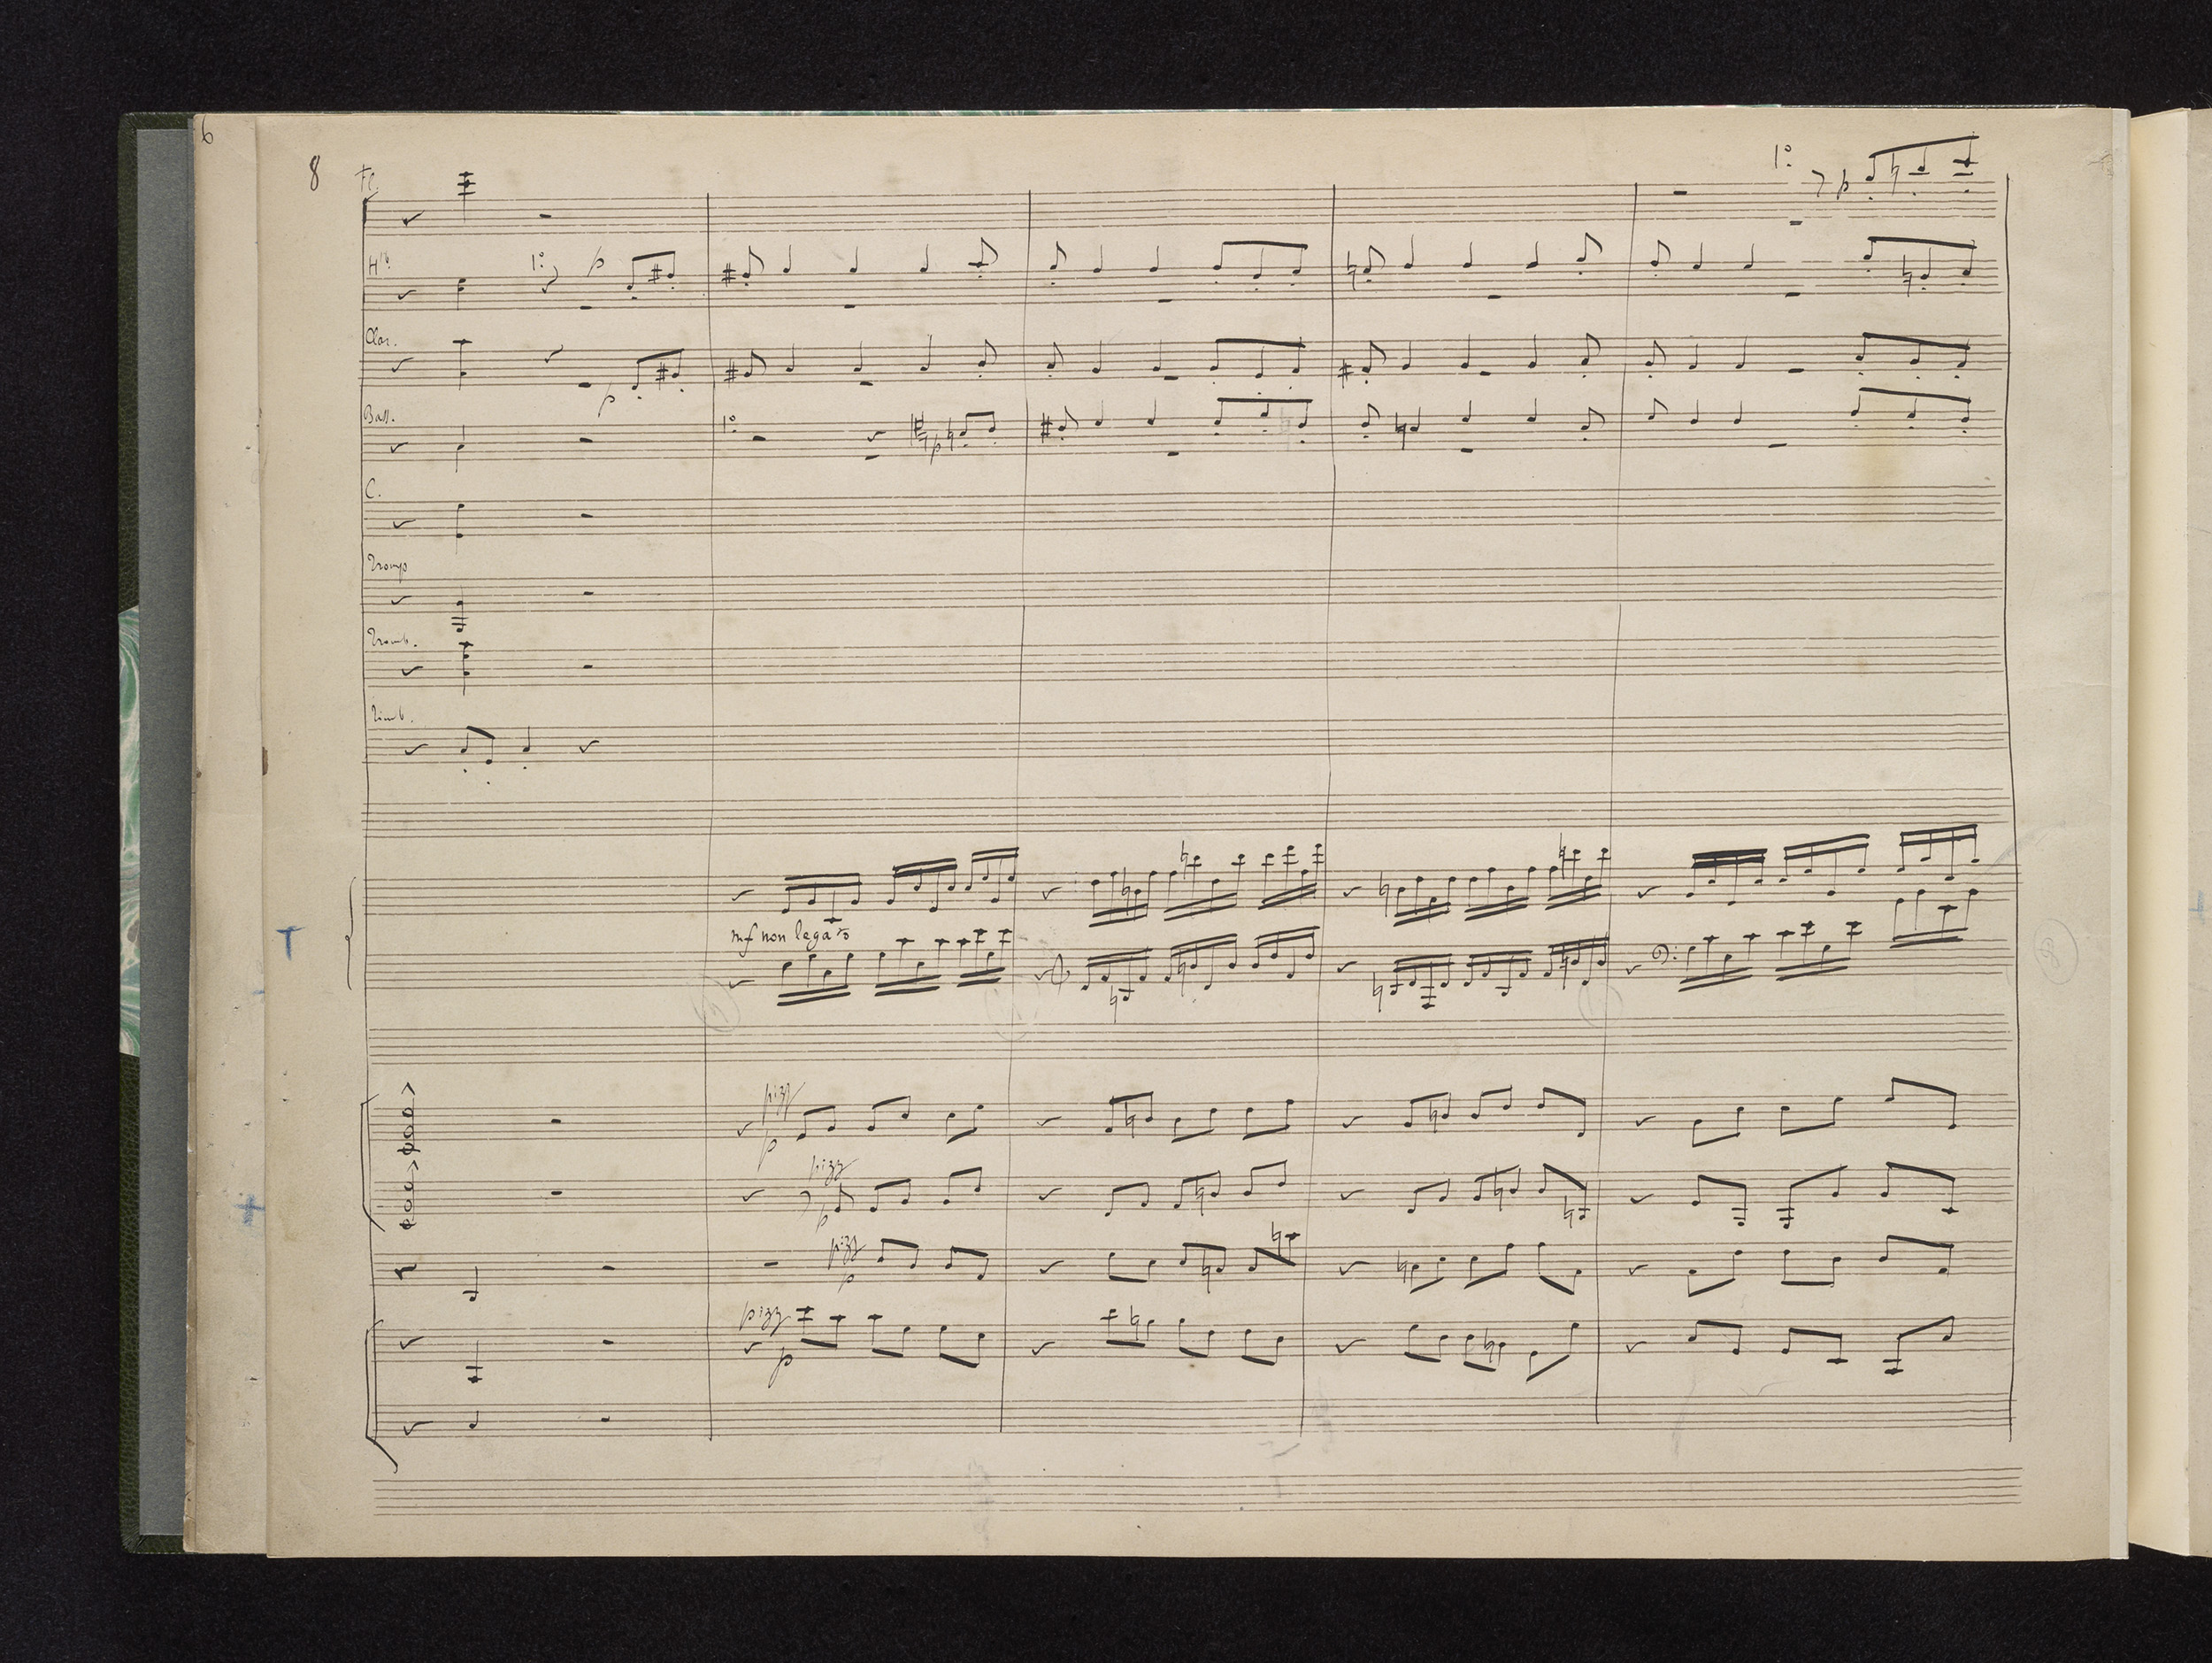 6
8
Fl.
1º
p
Htb.
1º
p
Clar.
p
Bass.
1º
p
C.
Tromp
Tromb.
Timb.
mf non legato
T
pizz
p
pizz
p
pizz
p
pizz
p